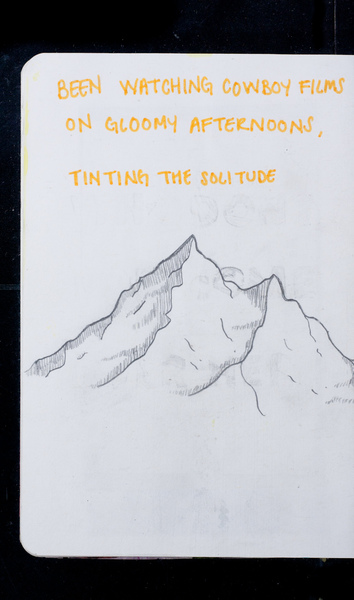 BEEN WATCHING COWBOY FILMS
ON GLOOMY AFTERNOONS,
TINTING THE SOLITUDE